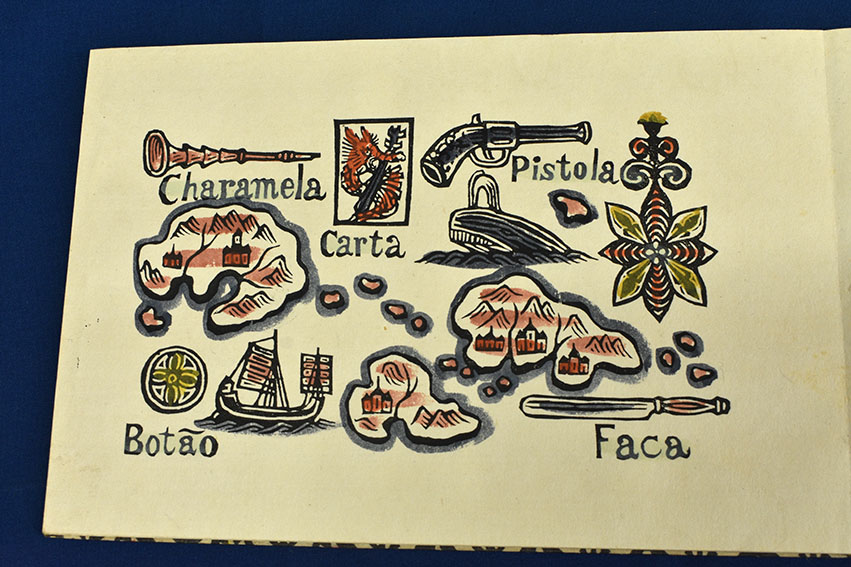 Charamela
Carta
Pistola
Botão
Faca